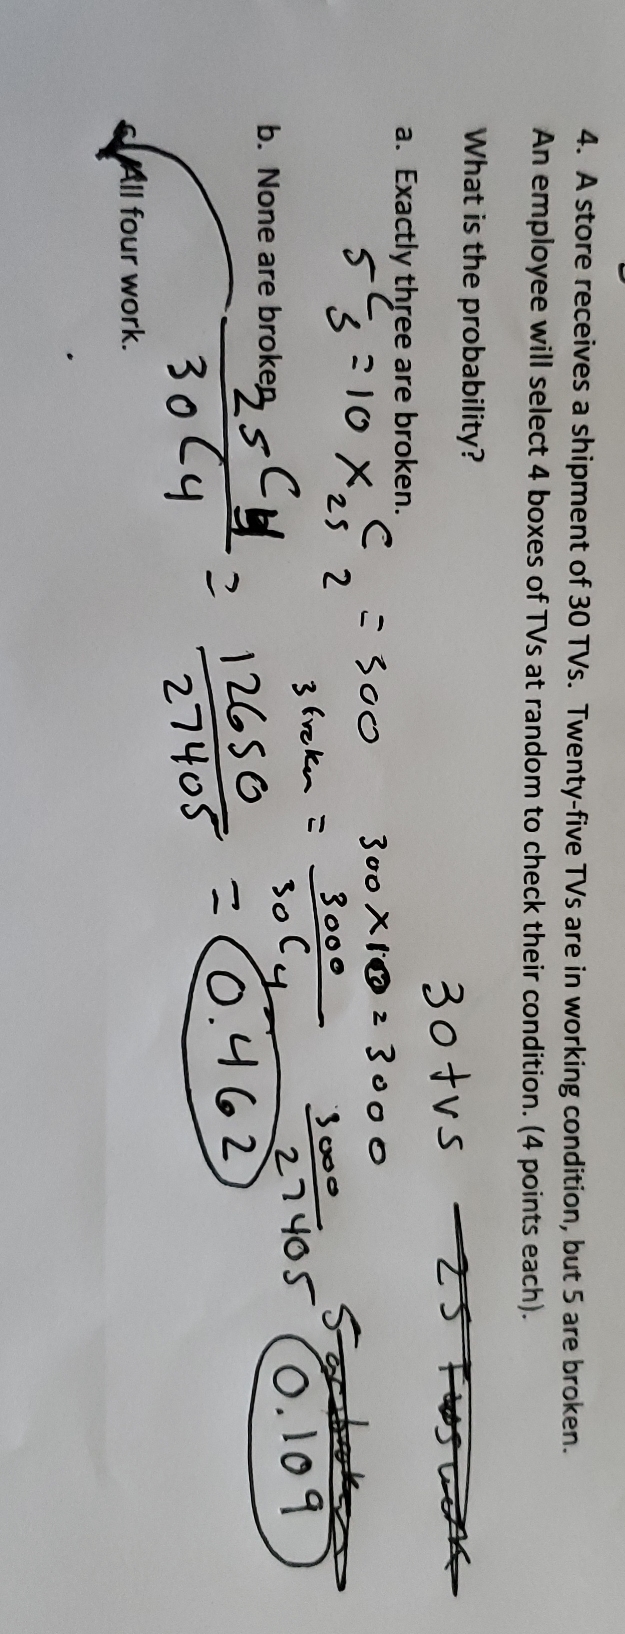 4. A store receives a shipment of 30 TVs. Twenty-five TVs are in working condition, but 5 are broken.
An employee will select 4 boxes of TVs at random to check their condition. (4 points each).
What is the probability?
30 tvs
a. Exactly three are broken.
5C3 = 10 × 25C2 = 300 300 × 10 = 3000
3 broken = 3000/30C4 3000/27405 0.109
b. None are broken.
25C4/30C4 = 12650/27405 = 0.462
c. All four work.